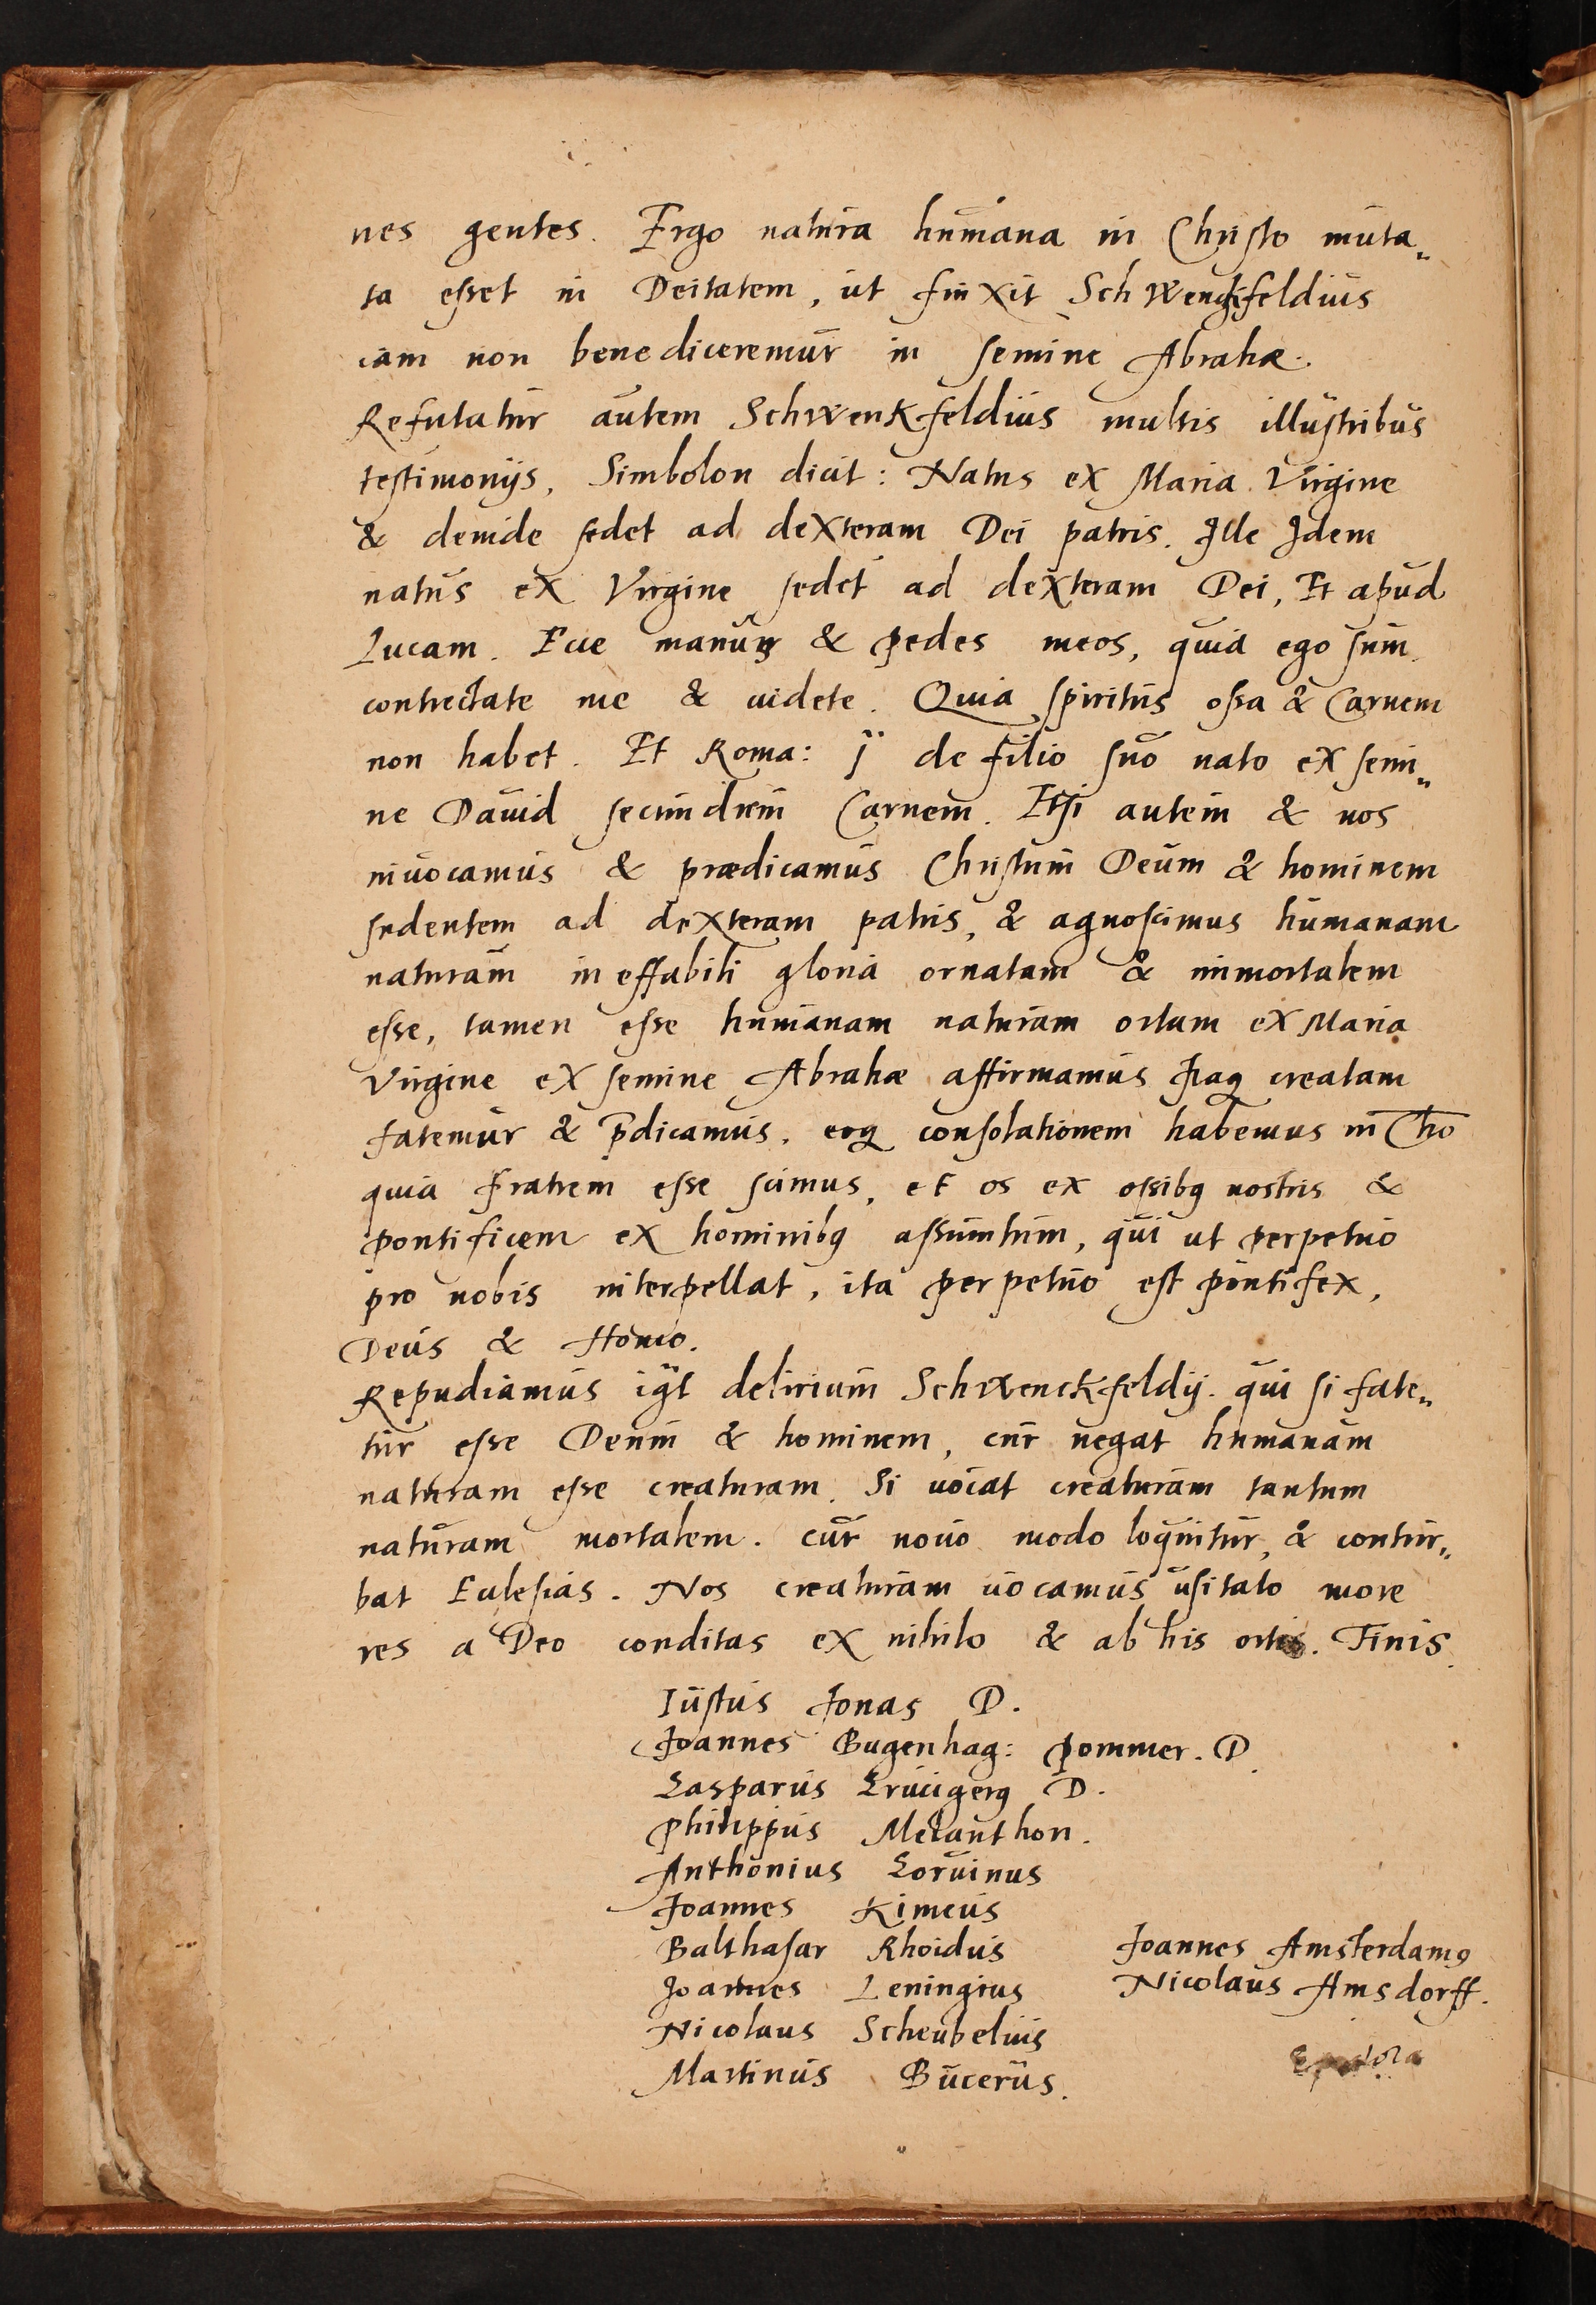 nes gentes. Ergo natura humana in Christo muta„
ta esset in Deitatem, ut finxit Schwenckfeldius
iam non benediceremur in semine Abrahæ.
Refutatur autem Schwenkfeldius multis illustribus
testimonijs. Simbolon dicit: Natus ex Maria Virgine
& deinde sedet ad dexteram Dei patris. Ille Idem
natus ex Virgine sedet ad dexteram Dei, Et apud
Lucam. Ecce manus & pedes meos, quia ego sum
contrectate me & uidete. Quia spiritus ossa & Carnem
non habet. Et Roma: j de filio suo nato ex semi„
ne Dauid secundum Carnem. Etsi autem & nos
inuocamus & prædicamus Christum Deum & hominem
sedentem ad dexteram patris, & agnoscimus humanam
naturam ineffabili gloria ornatam & immortalem
esse, tamen esse humanam naturam ortam ex Maria
Virgine ex semine Abrahæ affirmamus Itaq creatam
fatemur & p̄dicamus. eoq consolationem habemus in Chr̄o
quia fratrem esse scimus, et os ex ossibq nostris &
pontificem ex hominibq assumtum, qui ut perpetuo
pro nobis interpellat, ita perpetuo est pontifex,
Deus & Homo.
Repudiamus igt delirium Schwenckfeldij. qui si fate„
tur esse Deum & hominem, cur negat humanam
naturam esse creaturam. Si uocat creaturam tantum
naturam mortalem. cur nouo modo loquitur, & contur„
bat Ecclesias. Nos creaturam uocamus usitato more
res a Deo conditas ex nihilo & ab his ortis. Finis.
Iustus Jonas D.
Joannes Bugenhag: Pommer. D.
Casparus Crucigerꝰ D.
Philippus Melanthon.
Anthonius Coruinus
Joannes Kimeus
Balthasar Rhoidus Joannes Amsterdamꝰ
Joannes Leningius Nicolaus Amsdorff.
Nicolaus Scheubelius
Martinus Bucerus.